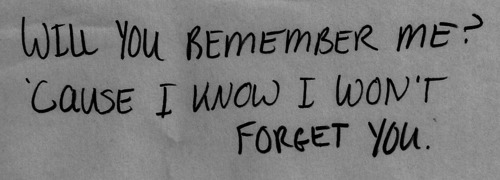 WILL YOU REMEMBER ME?
'CAUSE I KNOW I WON'T
FORGET YOU.